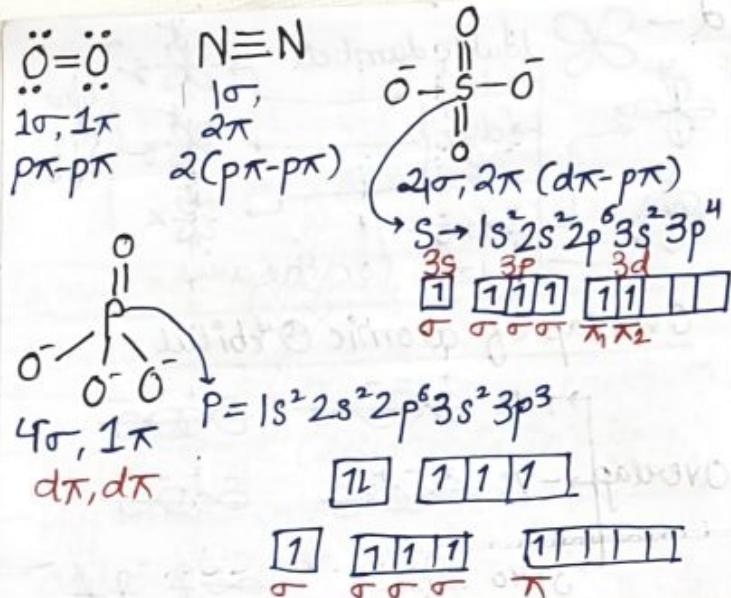 Ö=Ö N≡N
1σ, 1π
pπ-pπ
1σ,
2π
2(pπ-pπ)
O
O⁻-S-O⁻
O
4σ, 2π (dπ-pπ)
S → 1s² 2s² 2p⁶ 3s² 3p⁴
3s 3p 3d
1 1 1 1 1 1
σ σ σ σ π1 π2
O
P
O⁻ O⁻ O⁻
4σ, 1π
dπ, dπ
P = 1s² 2s² 2p⁶ 3s² 3p³
1L 1 1 1
1 1 1 1 1
σ σ σ σ π